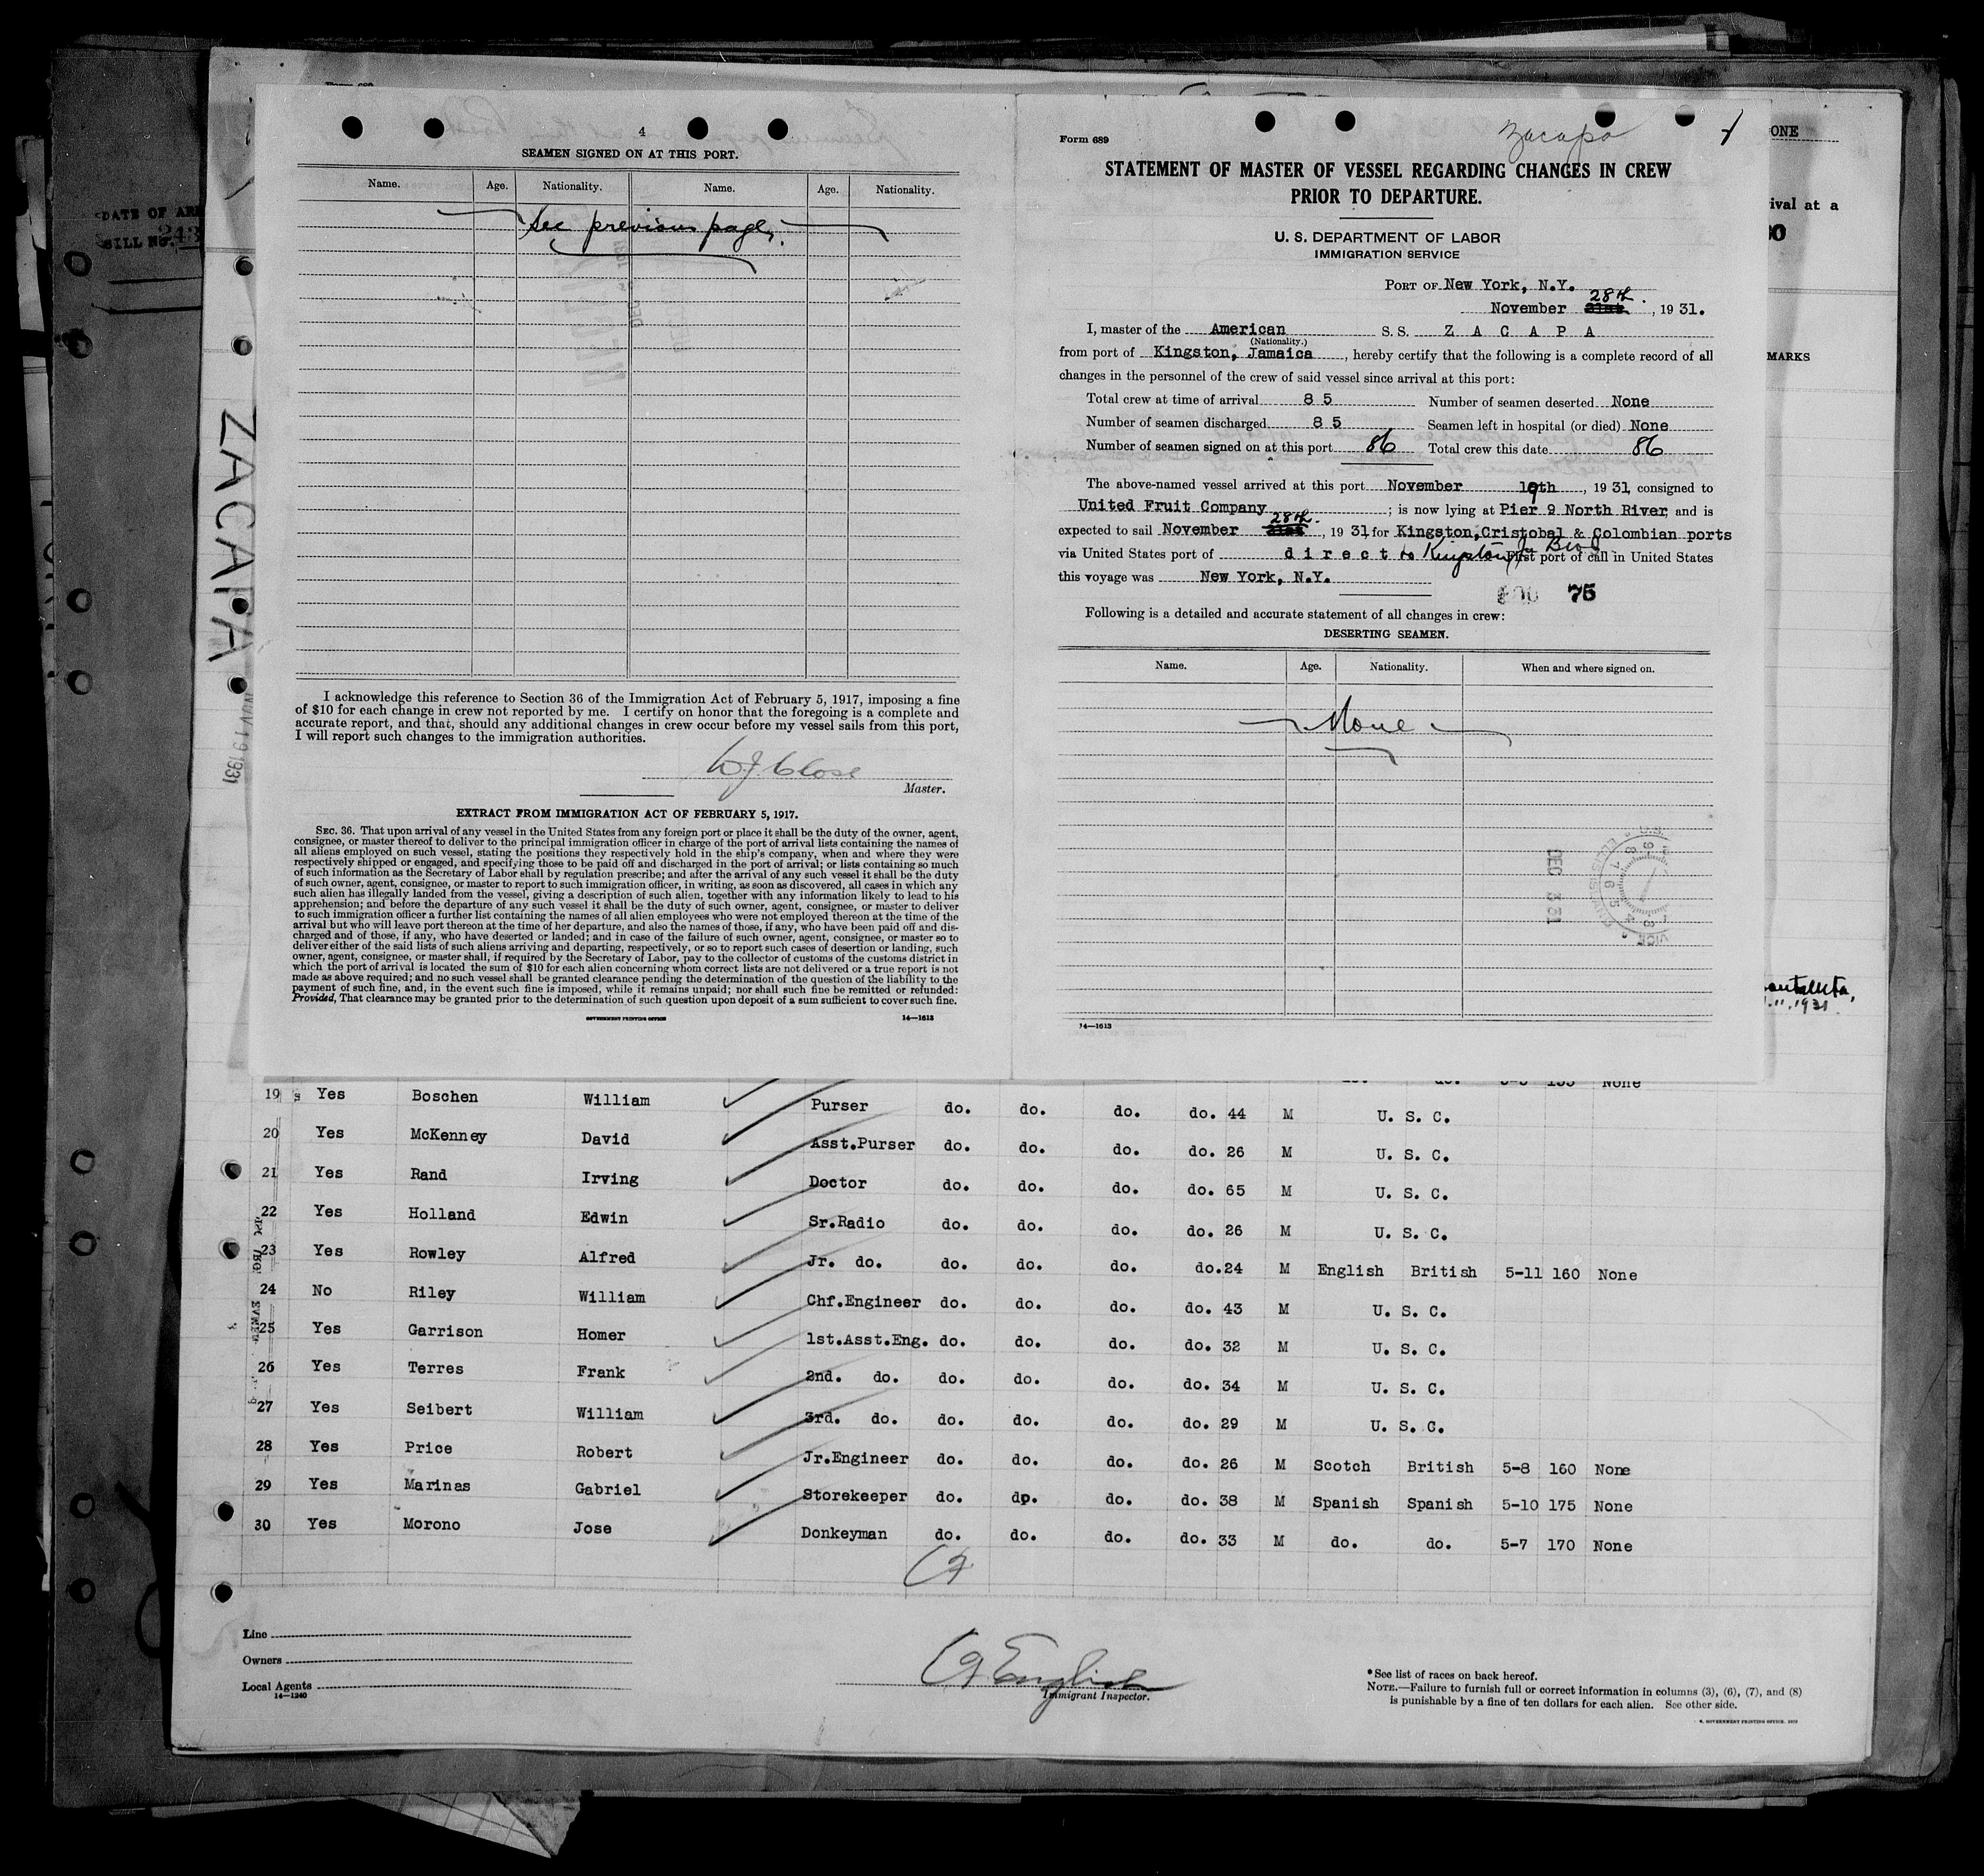 4
SEAMEN SIGNED ON AT THIS PORT.
Name. Age. Nationality. Name. Age. Nationality.
See previous page.
I acknowledge this reference to Section 36 of the Immigration Act of February 5, 1917, imposing a fine
of $10 for each change in crew not reported by me. I certify on honor that the foregoing is a complete and
accurate report, and that, should any additional changes in crew occur before my vessel sails from this port,
I will report such changes to the immigration authorities.
W J Close
Master.
EXTRACT FROM IMMIGRATION ACT OF FEBRUARY 5, 1917.
SEC. 36. That upon arrival of any vessel in the United States from any foreign port or place it shall be the duty of the owner, agent,
consignee, or master thereof to deliver to the principal immigration officer in charge of the port of arrival lists containing the names of
all aliens employed on such vessel, stating the positions they respectively hold in the ship's company, when and where they were
respectively shipped or engaged, and specifying those to be paid off and discharged in the port of arrival; or lists containing so much
of such information as the Secretary of Labor shall by regulation prescribe; and after the arrival of any such vessel it shall be the duty
of such owner, agent, consignee, or master to report to such immigration officer, in writing, as soon as discovered, all cases in which any
such alien has illegally landed from the vessel, giving a description of such alien, together with any information likely to lead to his
apprehension; and before the departure of any such vessel it shall be the duty of such owner, agent, consignee, or master to deliver
to such immigration officer a further list containing the names of all alien employees who were not employed thereon at the time of the
arrival but who will leave port thereon at the time of her departure, and also the names of those, if any, who have been paid off and dis-
charged and of those, if any, who have deserted or landed; and in case of the failure of such owner, agent, consignee, or master so to
deliver either of the said lists of such aliens arriving and departing, respectively, or so to report such cases of desertion or landing, such
owner, agent, consignee, or master shall, if required by the Secretary of Labor, pay to the collector of customs of the customs district in
which the port of arrival is located the sum of $10 for each alien concerning whom correct lists are not delivered or a true report is not
made as above required; and no such vessel shall be granted clearance pending the determination of the question of the liability to the
payment of such fine, and, in the event such fine is imposed, while it remains unpaid; nor shall such fine be remitted or refunded:
Provided, That clearance may be granted prior to the determination of such question upon deposit of a sum sufficient to cover such fine.
GOVERNMENT PRINTING OFFICE 14—1613
Form 689
Zacapa
STATEMENT OF MASTER OF VESSEL REGARDING CHANGES IN CREW
PRIOR TO DEPARTURE.
U. S. DEPARTMENT OF LABOR
IMMIGRATION SERVICE
PORT OF New York, N.Y.
November 21st 28th, 1931.
I, master of the American S. S. Z A C A P A
(Nationality.)
from port of Kingston, Jamaica, hereby certify that the following is a complete record of all
changes in the personnel of the crew of said vessel since arrival at this port:
Total crew at time of arrival 8 5 Number of seamen deserted None
Number of seamen discharged 8 5 Seamen left in hospital (or died) None
Number of seamen signed on at this port 86 Total crew this date 86
The above-named vessel arrived at this port November 19th, 1931, consigned to
United Fruit Company; is now lying at Pier 9 North River, and is
expected to sail November 21st 28th, 1931, for Kingston,Cristobal & Colombian ports
via United States port of d i r e c t to Kingston First port of call in United States
this voyage was New York, N.Y.
75
Following is a detailed and accurate statement of all changes in crew:
DESERTING SEAMEN.
Name. Age. Nationality. When and where signed on.
None
DEC 3 31
14—1613
DATE OF AR
BILL No. 243
ZACAPA
NOV 19 1931
ONE
ival at a
MARKS
.11.1931
None
19 Yes Boschen William Purser do. do. do. do. 44 M U. S. C.
20 Yes McKenney David Asst.Purser do. do. do. do. 26 M U. S. C.
21 Yes Rand Irving Doctor do. do. do. do. 65 M U. S. C.
22 Yes Holland Edwin Sr.Radio do. do. do. do. 26 M U. S. C.
23 Yes Rowley Alfred Jr. do. do. do. do. do.24 M English British 5-11 160 None
24 No Riley William Chf.Engineer do. do. do. do. 43 M U. S. C.
25 Yes Garrison Homer 1st.Asst.Eng. do. do. do. do. 32 M U. S. C.
26 Yes Terres Frank 2nd. do. do. do. do. do. 34 M U. S. C.
27 Yes Seibert William 3rd. do. do. do. do. do. 29 M U. S. C.
28 Yes Price Robert Jr.Engineer do. do. do. do. 26 M Scotch British 5-8 160 None
29 Yes Marinas Gabriel Storekeeper do. do. do. do. 38 M Spanish Spanish 5-10 175 None
30 Yes Morono Jose Donkeyman do. do. do. do. 33 M do. do. 5-7 170 None
Line
Owners
Local Agents
14—1240
English
Immigrant Inspector.
*See list of races on back hereof.
NOTE.—Failure to furnish full or correct information in columns (3), (6), (7), and (8)
is punishable by a fine of ten dollars for each alien. See other side.